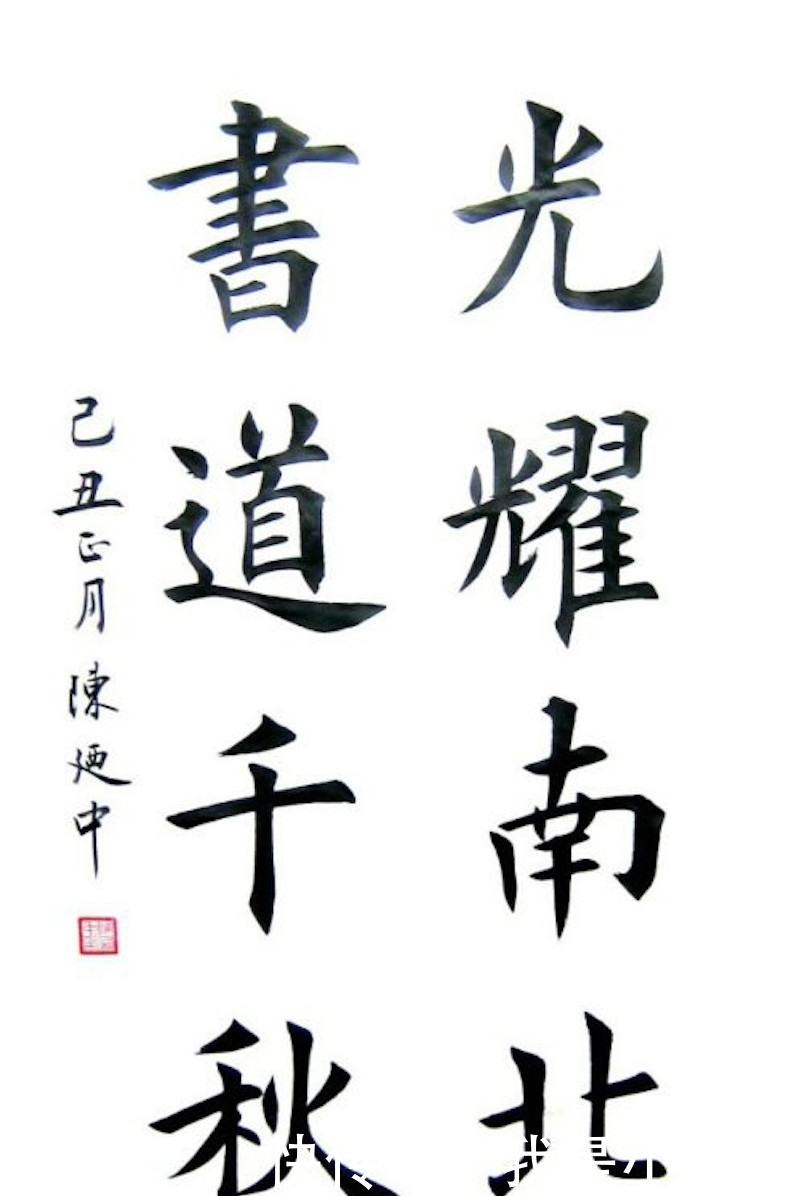 光耀南北
書道千秋
己丑正月 陳廼中